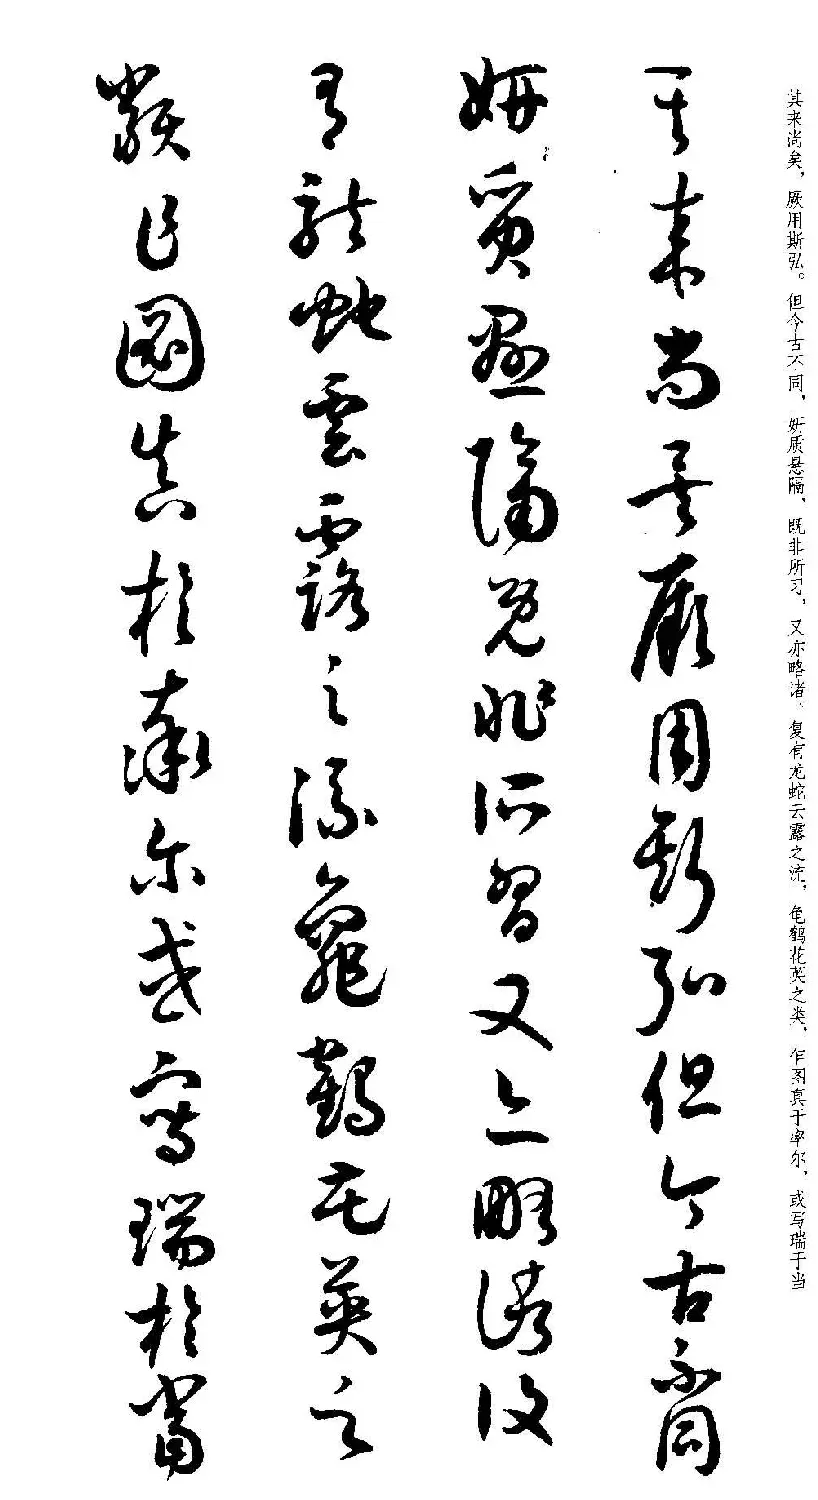 其来尚矣，厥用斯弘。但今古不同，妍质悬隔，既非所习，又亦略诸。复有龙蛇云露之流，龟鹤花英之类，乍图真于率尔，或写瑞于当
其來尚矣厥用斯弘但今古不同
妍質懸隔既非所習又亦略諸復
有龍蛇雲露之流龜鶴花英之
類乍圖真於率尔或寫瑞於當